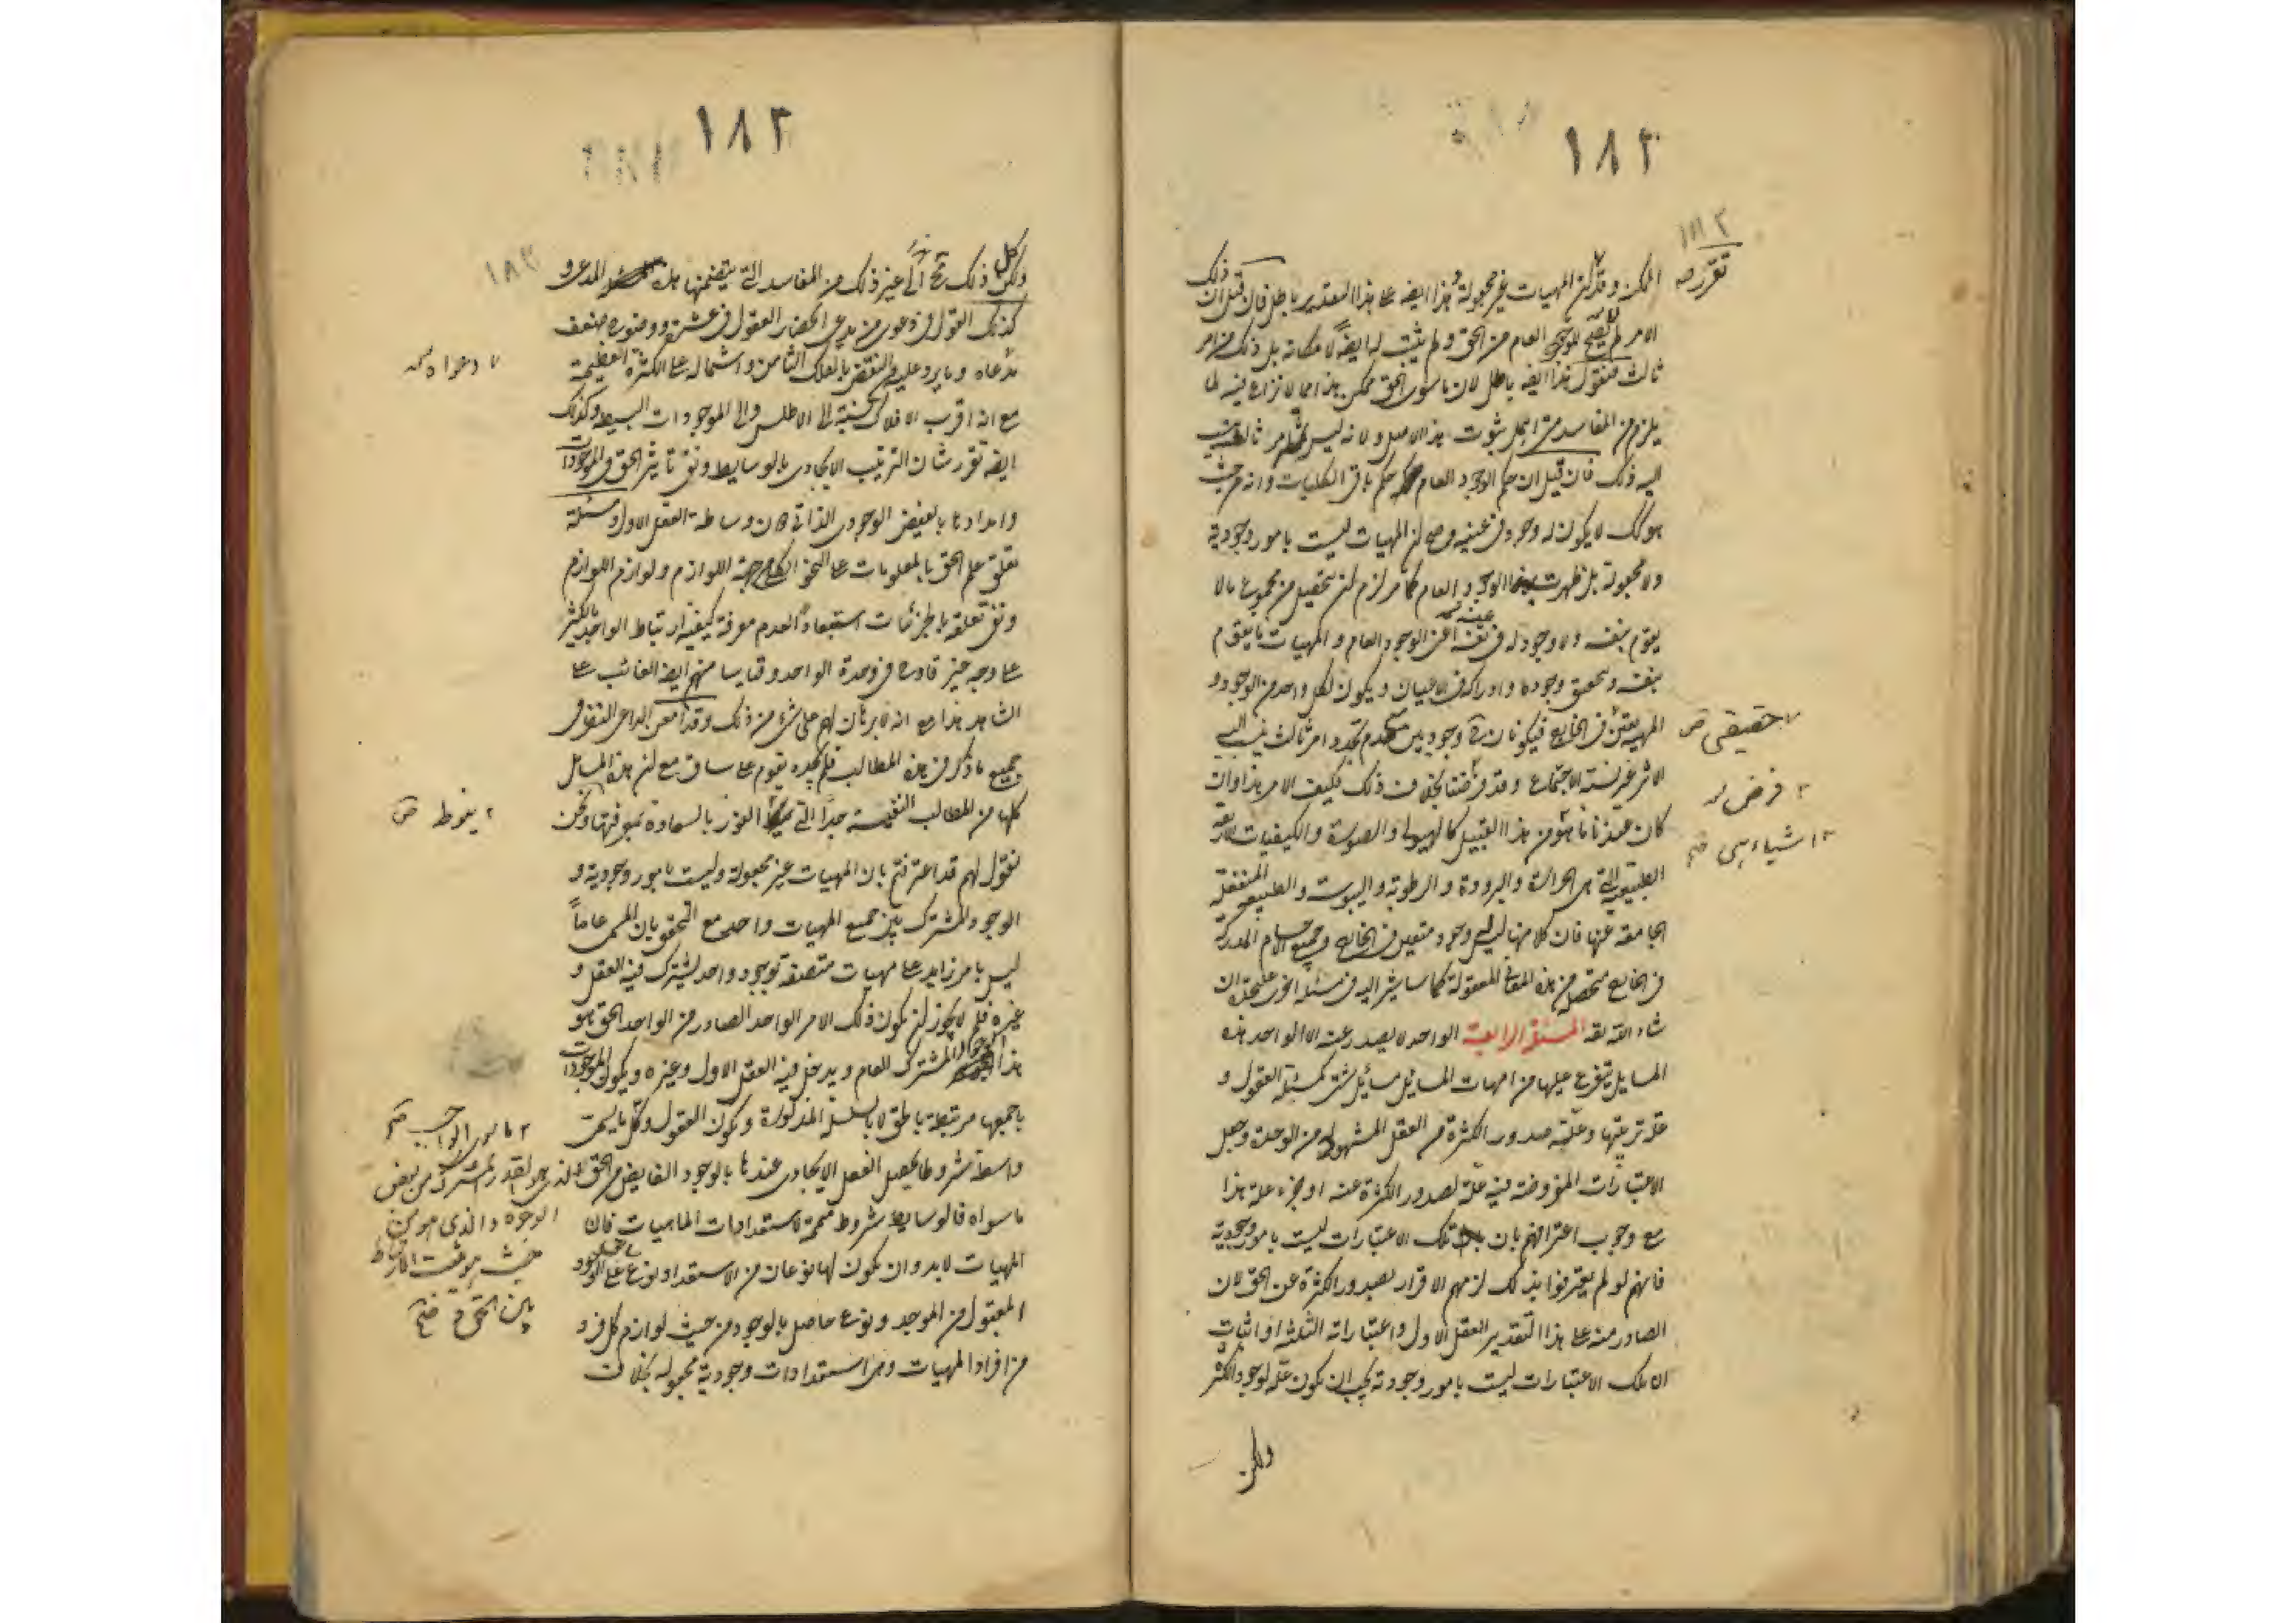 ١٨٢
١٨٢
تقرر صه
الممكن وقد ان المهيات غير مجعولة وهذا ايضه على هذا التقدير باطل فان قيل ان ذلك
الامر لم يصح للوجود العام من الحق ولم يثبت لها ايضًا لامكانه بل ذلك من امر
ثالث فنقول هذا ايضه باطل لان ما سوى الحق ممكن هذا مما لا نزاع فيه لما
يلزم من المفاسد من اجل ثبوت هذا الاصل ولانه ليس ثم امر ثالث ينسب
اليه ذلك فان قيل ان حكم الوجود العام حكم باقي الكليات وانه من حيث
هو كك لا يكون له وجود في عينه وصح ان المهيات ليست بامور وجودية
ولا مجعولة بل ظهرت بهذا الوجود العام كما مر لزم ان يتحصل من مجموع ما لا
يقوم بنفسه ولا وجود له في نفسه عينه اعني الوجود العام والمهيات ما يقوم
بنفسه وتحقق وجوده وادراكه في الاعيان ويكون لكل واحد من الوجود و
المهية تعين في الخارج فيكونان وجوديين مع عدم تجدد امر ثالث ينسب اليه
حقيقى ص
الاثر غير نسبة الاجتماع وقد فرضنا بخلاف ذلك فكيف الامر هذا وان
٢ فرض له
كان عندنا ما هو من هذا القبيل كالهيولى والصورة والكيفيات الاربعة
٣ اشياء هى صح
الطبيعية التي هي الحرارة والبرودة والرطوبة واليبوسة والطبيعة المنفعلة
الجامعة عنها فان كلا منها ليس له وجود متعين في الخارج وجميع الاجسام المدركة
في الخارج متحصل من هذه المعاني المعقولة كما سا يشير اليه في مسئلة اخرى على حدة ان
شاء الله تعه المسئلة الرابعة الواحد لا يصدر عنه الا الواحد هذه
المسايل يتفرع عليها من امهات المسائل مسائل شتى كمسئلة العقول و
علة ترتيبها وعلة صدور الكثرة من العقل المشهود له من الوحدة وجعل
الاعتبارات المفروضة فيه علة لصدور الكثرة عنه او جزء علة هذا
مع وجوب اعترافهم بان تلك الاعتبارات ليست بامور وجودية
فانهم لو لم يعترفوا بذلك لزمهم الاقرار بصدور الكثرة عن الحق لان
الصادر منه على هذا التقدير العقل الاول واعتباراته الثلثة او اثبات
ان تلك الاعتبارات ليست بامور وجودية يجب ان يكون علة لوجود الكثرة
ولكن
١٨٣
١٨٣
ولكن كل ذلك مح الى غير ذلك من المفاسد التي يتضمنها هذه المدعى و
كذلك القول في دعوى من يدعى انحصار العقول في عشرة ووضوح ضعف
مدعاه وما يرد عليهم من النقض بالفلك الثامن واشتماله على الكثرة العظيمة
دعواه نسخه
مع انه اقرب الافلاك نسبة الى الاطلس والى الموجودات البسيطة وكذلك
ايضه تقرر شان الترتيب الايجادى بالوسايط ونفي تأثير الحق في الموجودات
وامدادها بالفيض الوجودى الذاتي دون وساطة العقل الاول ومسئلة
تعلق علم الحق بالمعلومات على النحو الكلى من جهة اللوازم ولوازم اللوازم
ونفي تعلقه بالجزئيات استبعادًا لعدم معرفة كيفية ارتباط الواحد بالكثير
على وجه غير قادح في وحدة الواحد وقياسا منهم ايضه الغائب على
الشاهد هذا مع انه لا برهان لهم على شئ من ذلك وقد امعن الداعى النظر في
جميع ما ذكر في هذه المطالب فلم يجده يقوم على ساق مع ان هذه المسائل
كلها من المطالب النفيسة جدًا التي الفوز بالسعادة بمعرفتها ونحن
٢ ينوط ص
نقول لهم قد اعترفتم بان المهيات غير مجعولة وليست بامور وجودية و
الوجود المشترك بين جميع المهيات واحد مع التحقق بان المسمى عاماً
ليس بامر زايد على مهيات متصفة بوجود واحد يشترك فيه العقل و
غيره فلم لا يجوز ان يكون ذلك الامر الواحد الصادر من الواحد الحق هو
هذا الوجود المشترك العام ويدخل فيه العقل الاول وغيره ويكون الموجودات
باجمعها مرتبطة بالحق لا بالسلسلة المذكورة ويكون العقول وكل ما يسمى
واسطة شروطا لتحصيل الفعل الايجادى عندها بالوجود الفايض من الحق
ما سواه فالوسايط شروط متممة لاستعدادات الماهيات فان
المهيات لابد وان يكون لها نوعان من الاستعداد نوع على الوجود
المقبول من الموجد ونوع حاصل بالوجود من حيث لوازم كل فرد
من افراد المهيات وهى استعدادات وجودية مجعولة بخلاف
٢ ما سوى الواجب صح
الذى هو القدر المشترك من بعض
الوجوه والذى هو من
حيث هو يثبت الارتباط
بين الحق و صح